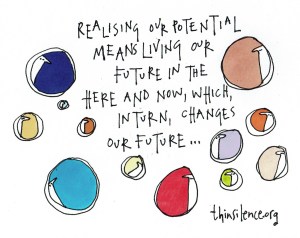 REALISING OUR POTENTIAL
MEANS LIVING OUR
FUTURE IN THE
HERE AND NOW, WHICH,
IN TURN, CHANGES
OUR FUTURE...
thinsilence.org